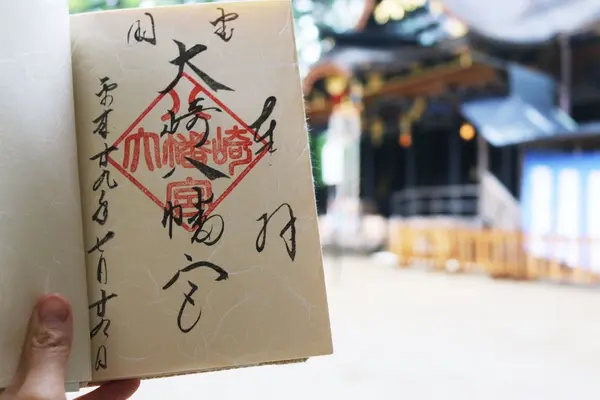 国宝
奉拝
大崎八幡宮
平成廿九年七月廿日
大崎八幡宮